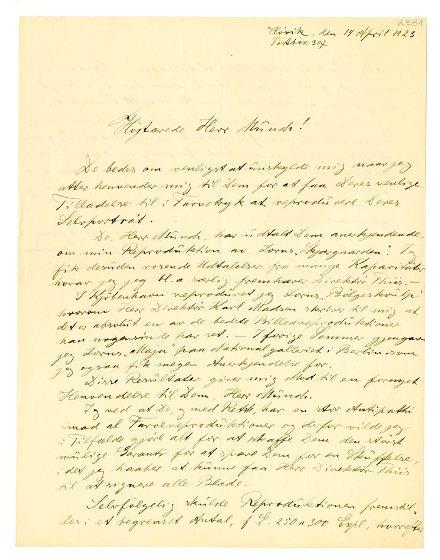 K381
Høvik, den 14 April 1923
Postbox 304
Højtærede Herr Munch!
De bedes om venligst at undskylde mig naar jeg
atter henvender mig til Dem for at faa Deres venlige
Tilladelse til i Farvetryk at reproducere Deres
Selvportræt.
De, Herr Munch, har udtalt Dem anerkjendende
om min Reproduktion av Zorns, "Skjærgaarden". Jeg
fik desuden rosende Udtalelser fra mange Kapaciteter
hvorav jeg bl.a. særlig fremhæver Direktør Thiis.-
I Kjøbenhavn reproduceret jeg Zorns, Bølgeskvulp"
hvorom Herr Direktør Karl Madsen skriver til mig at
det er absolut en av de bedste Billedreproduktioner
han nogensinde har set. - I forrige Sommer gjengav
jeg Zorns "Maja" paa Nationalgalleriet i Berlin som
jeg ogsaa fik megen Anerkjendelse for.
Disse Resultater giver mig Mod til en fornyet
Henvendelse til Dem, Herr Munch.
Jeg ved at De, og med Rette, har en stor Antipathi
mod al Farvereproduktioner og derfor vilde jeg
i Tilfælde gjøre alt for at skaffe Dem den størst
mulige Garanti for at spare Dem for en Skuffelse,
idet jeg haaber at kunne faa Herr Direktør Thiis
til at signere alle Plade.
Selvfølgelig skulde Reproduktionen fremstil-
les i et begrænset Antal, f. E. 250 a 300 Expl, hvorefter